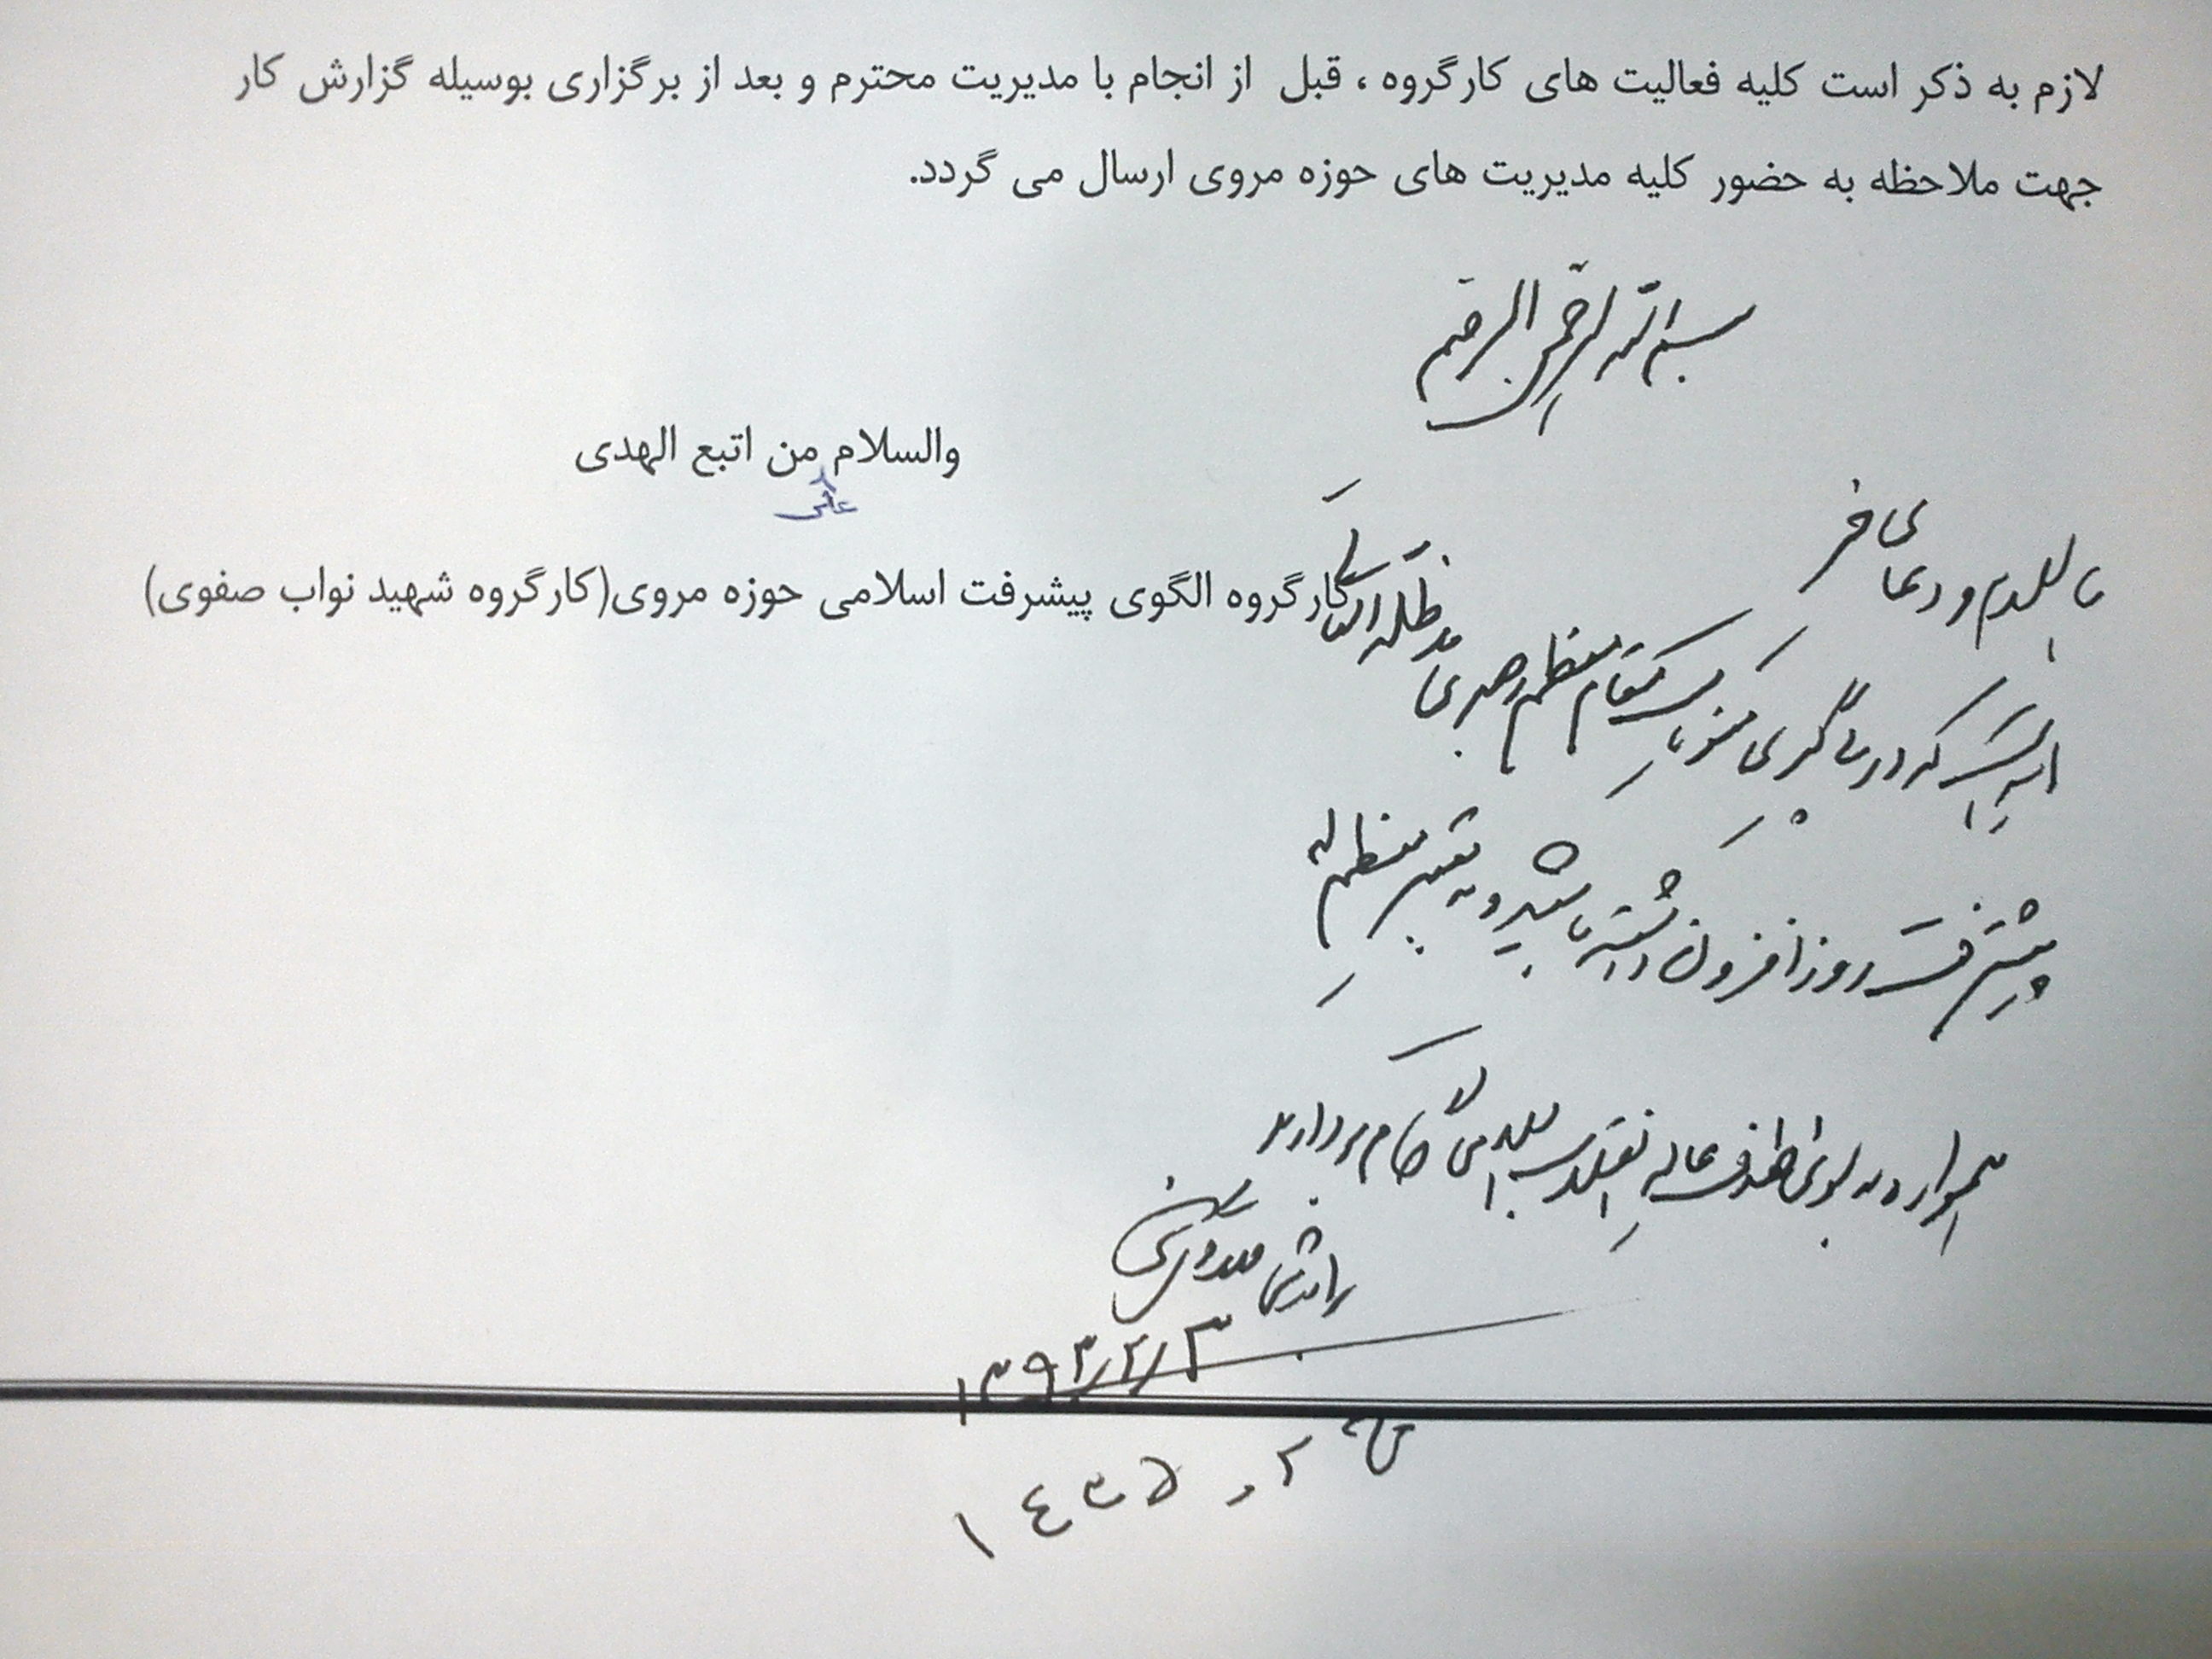 لازم به ذکر است کلیه فعالیت های کارگروه ، قبل از انجام با مدیریت محترم و بعد از برگزاری بوسیله گزارش کار
جهت ملاحظه به حضور کلیه مدیریت های حوزه مروی ارسال می گردد.
بسم الله الرحمن الرحیم
والسلام من اتبع الهدی
علی
کارگروه الگوی پیشرفت اسلامی حوزه مروی(کارگروه شهید نواب صفوی)
با سلام و دعای خیر
که در پیگیری منویات مقام معظم رهبری مدظله العالی
پیشرفت روز افزون داشته باشید و به تعبیر معظم له
همواره به سوی اهداف عالیه انقلاب اسلامی گام بردارید
۱۳۹۳/۲/۳
۱۴۳۵